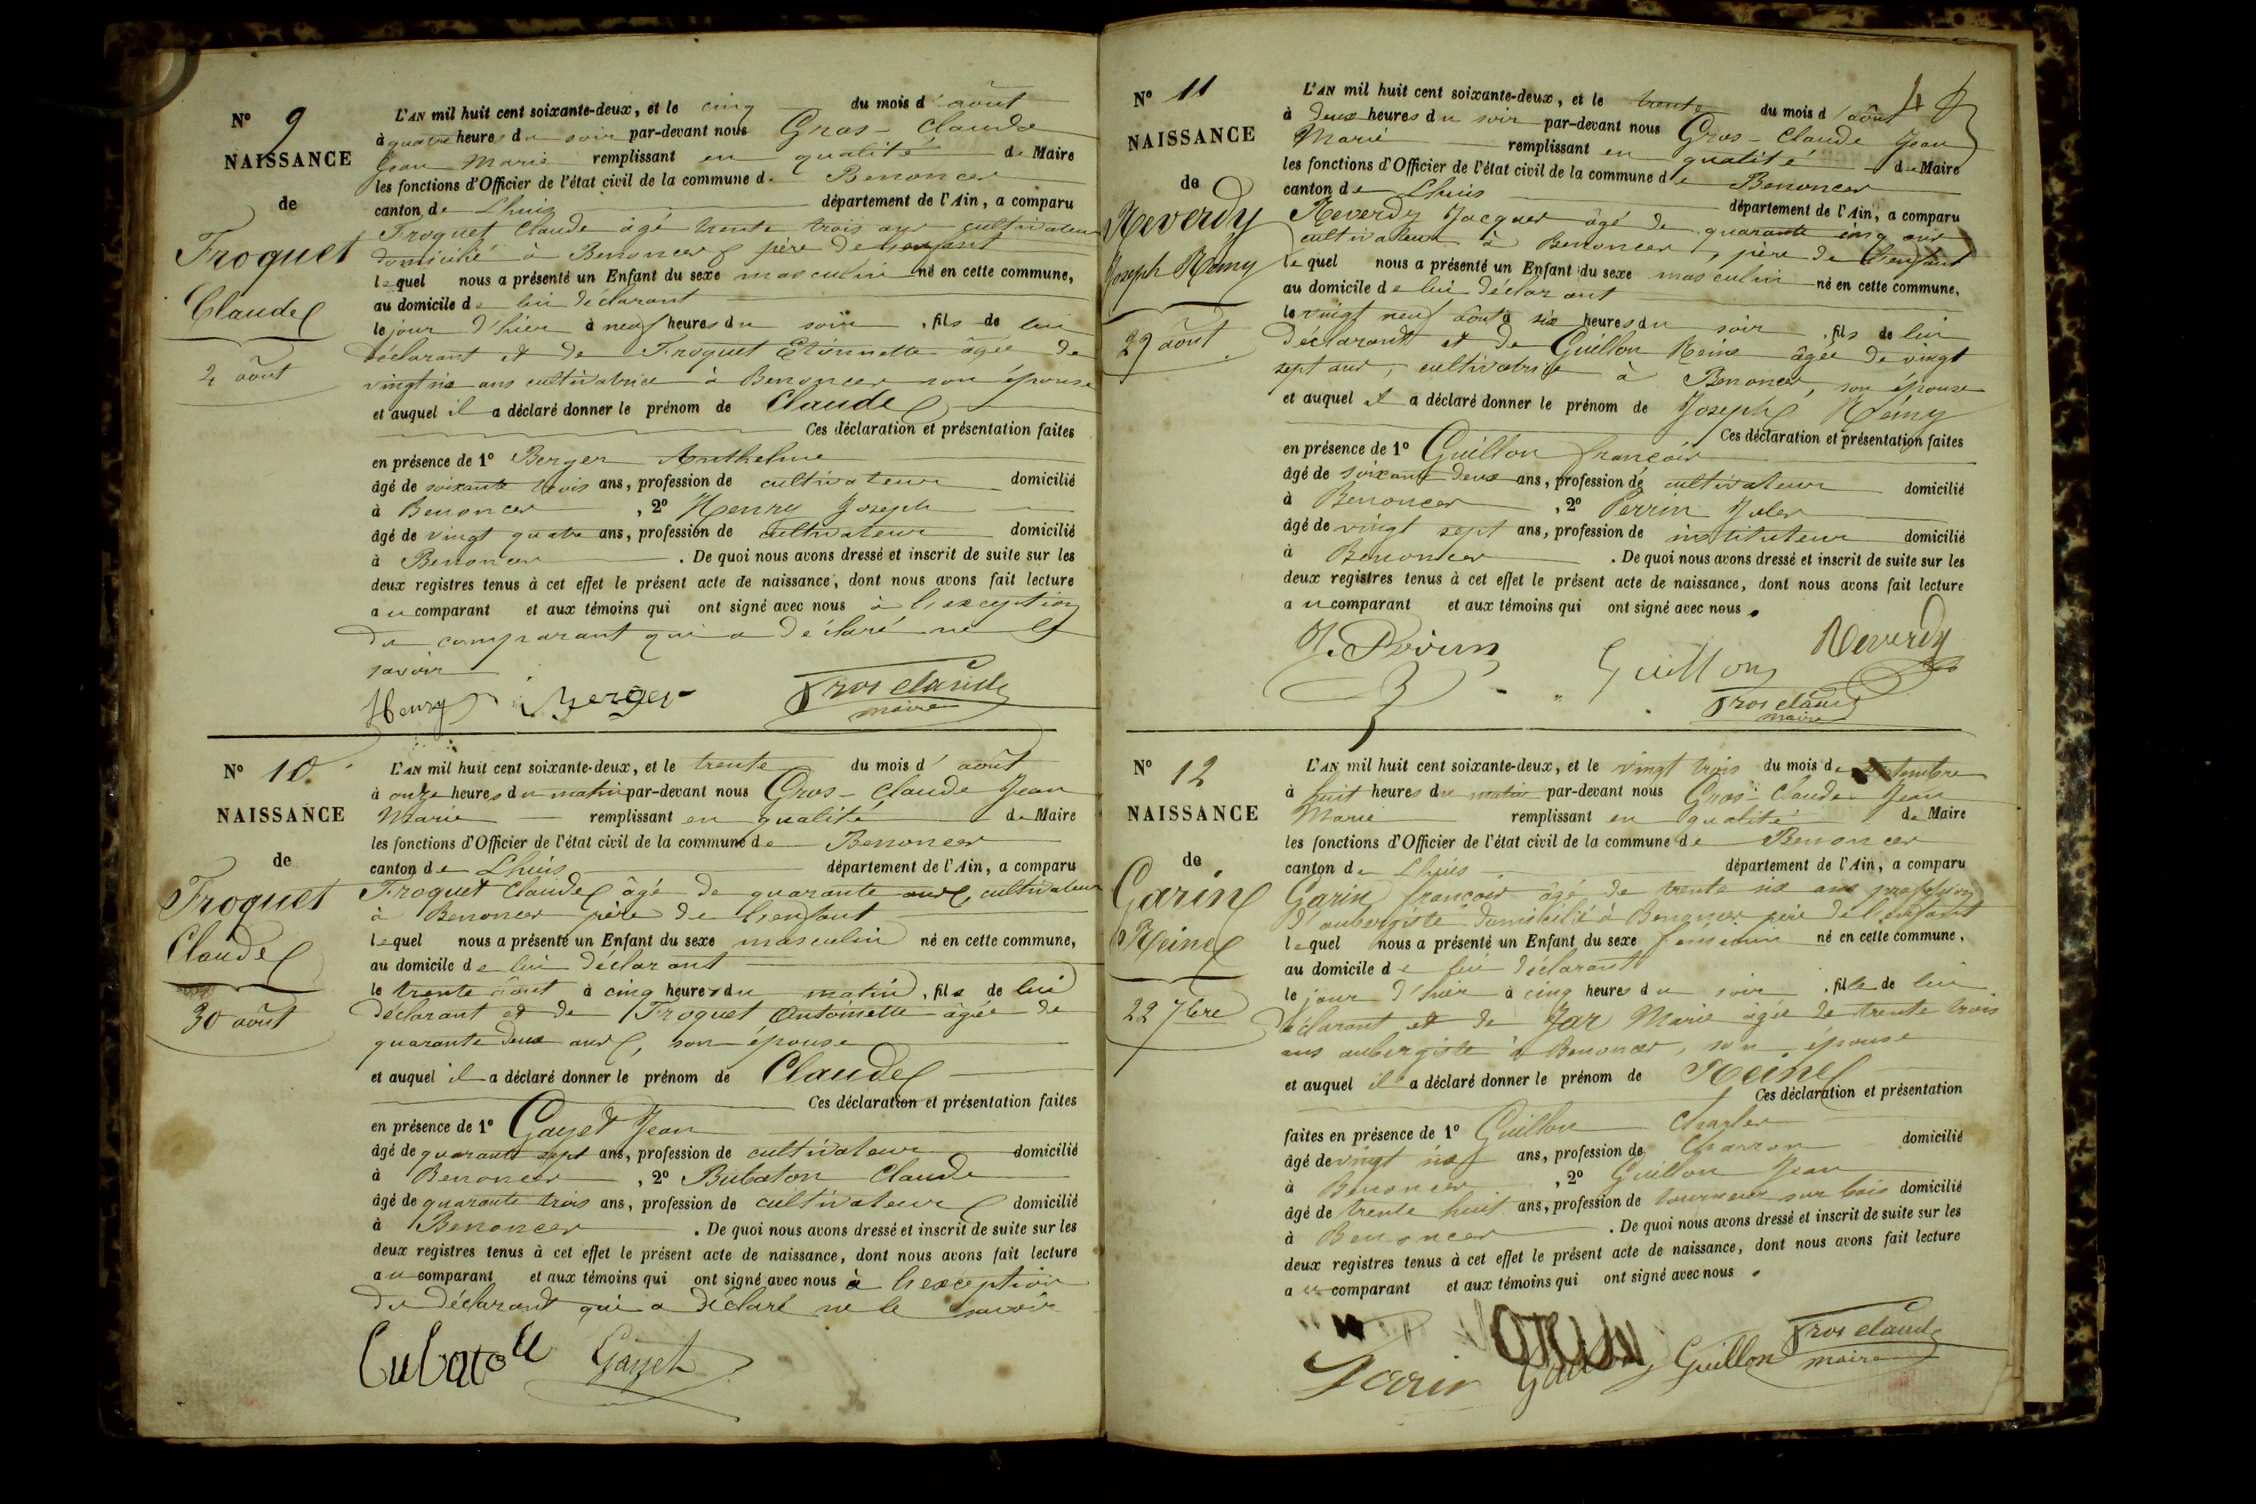 N° 9
NAISSANCE
de
Froquet
Claude
4 août
L'AN mil huit cent soixante-deux, et le cinq du mois d'août
à quatre heures du soir par-devant nous Gros-Claude
Jean Marie remplissant en qualité de Maire
les fonctions d'Officier de l'état civil de la commune de Benonces
canton de Lhuis département de l'Ain, a comparu
Froquet Claude âgé trente trois ans cultivateur
domicilié à Benonces père de l'enfant
lequel nous a présenté un Enfant du sexe masculin né en cette commune,
au domicile de lui déclarant
le jour d'hier à neuf heures du soir, fils de lui
déclarant et de Froquet Etiennette âgée de
vingt six ans cultivatrice à Benonces son épouse
et auquel il a déclaré donner le prénom de Claude
Ces déclaration et présentation faites
en présence de 1° Berger Anthelme
âgé de soixante trois ans, profession de cultivateur domicilié
à Benonces, 2° Henry Joseph
âgé de vingt quatre ans, profession de cultivateur domicilié
à Benonces. De quoi nous avons dressé et inscrit de suite sur les
deux registres tenus à cet effet le présent acte de naissance, dont nous avons fait lecture
au comparant et aux témoins qui ont signé avec nous à l'exception
du comparant qui a déclaré ne le
savoir
Henry Berger Gros claude
maire
N° 10
NAISSANCE
de
Froquet
Claude
30 août
L'AN mil huit cent soixante-deux, et le trente du mois d'août
à onze heures du matin par-devant nous Gros-Claude Jean
Marie remplissant en qualité de Maire
les fonctions d'Officier de l'état civil de la commune de Benonces
canton de Lhuis département de l'Ain, a comparu
Froquet Claude âgé de quarante ans, cultivateur
à Benonces père de l'enfant
lequel nous a présenté un Enfant du sexe masculin né en cette commune,
au domicile de lui déclarant
le trente août à cinq heures du matin, fils de lui
déclarant et de Froquet Antoinette âgée de
quarante deux ans, son épouse
et auquel il a déclaré donner le prénom de Claude
Ces déclaration et présentation faites
en présence de 1° Gayet Jean
âgé de quarante sept ans, profession de cultivateur domicilié
à Benonces, 2° Bubaton Claude
âgé de quarante trois ans, profession de cultivateur domicilié
à Benonces. De quoi nous avons dressé et inscrit de suite sur les
deux registres tenus à cet effet le présent acte de naissance, dont nous avons fait lecture
au comparant et aux témoins qui ont signé avec nous à l'exception
du déclarant qui a déclaré ne le savoir
Gayet
N° 11
NAISSANCE
de
Reverdy
Joseph Rémy
29 août
4
L'AN mil huit cent soixante-deux, et le trente du mois d'août
à deux heures du soir par-devant nous Gros-Claude Jean
Marie remplissant en qualité de Maire
les fonctions d'Officier de l'état civil de la commune de Benonces
canton de Lhuis département de l'Ain, a comparu
Reverdy Jacques âgé de quarante cinq ans
cultivateur à Benonces, père de l'enfant
lequel nous a présenté un Enfant du sexe masculin né en cette commune,
au domicile de lui déclarant
le vingt neuf août à six heures du soir, fils de lui
déclarant et de Guillon Reine âgée de vingt
sept ans, cultivatrice à Benonces, son épouse
et auquel il a déclaré donner le prénom de Joseph Rémy
Ces déclaration et présentation faites
en présence de 1° Guillon françois
âgé de soixante deux ans, profession de cultivateur domicilié
à Benonces, 2° Perrin Jules
âgé de vingt sept ans, profession de instituteur domicilié
à Benonces. De quoi nous avons dressé et inscrit de suite sur les
deux registres tenus à cet effet le présent acte de naissance, dont nous avons fait lecture
au comparant et aux témoins qui ont signé avec nous.
J. Perrin Guillon Reverdy
Gros claude
maire
N° 12
NAISSANCE
de
Garin
Reine
22 7bre
L'AN mil huit cent soixante-deux, et le vingt trois du mois de septembre
à huit heures du matin par-devant nous Gros-Claude Jean
Marie remplissant en qualité de Maire
les fonctions d'Officier de l'état civil de la commune de Benonces
canton de Lhuis département de l'Ain, a comparu
Garin françois âgé de trente six ans profession
d'aubergiste domicilié à Benonces père de l'enfant
lequel nous a présenté un Enfant du sexe féminin né en cette commune,
au domicile de lui déclarant
le jour d'hier à cinq heures du soir, fille de lui
déclarant et de Jar Marie âgée de trente trois
ans aubergiste à Benonces, son épouse
et auquel il a déclaré donner le prénom de Reine
Ces déclaration et présentation
faites en présence de 1° Guillon Charles
âgé de vingt six ans, profession de Charron domicilié
à Benonces, 2° Guillon Jean
âgé de trente huit ans, profession de tourneur sur bois domicilié
à Benonces. De quoi nous avons dressé et inscrit de suite sur les
deux registres tenus à cet effet le présent acte de naissance, dont nous avons fait lecture
au comparant et aux témoins qui ont signé avec nous.
Garin Guillon Gros claude
maire